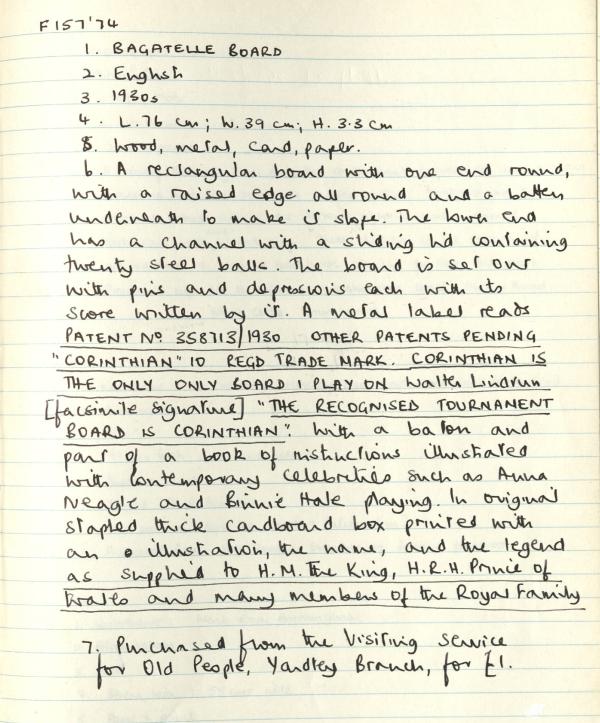 F157'74
1. BAGATELLE BOARD
2. English
3. 1930s
4. L.76 cm; W.39 cm; H. 3.3 cm
5. Wood, metal, card, paper.
6. A rectangular board with one end round,
with a raised edge all round and a batten
underneath to make it slope. The lower end
has a channel with a sliding lid containing
twenty steel balls. The board is set out
with pins and depressions each with its
score written by it. A metal label reads
PATENT No 358713/1930 OTHER PATENTS PENDING
"CORINTHIAN" 10 REGD TRADE MARK. CORINTHIAN IS
THE ONLY ONLY BOARD I PLAY ON Walter Lindrum
[facsimile signature] "THE RECOGNISED TOURNAMENT
BOARD IS CORINTHIAN". With a baton and
part of a book of instructions illustrated
with contemporary celebrities such as Anna
Neagle and Binnie Hale playing. In original
stapled thick cardboard box printed with
an illustration, the name, and the legend
as supplied to H.M. The King, H.R.H. Prince of
Wales and many members of the Royal Family
7. Purchased from the Visiting Service
for Old People, Yardley Branch, for £1.